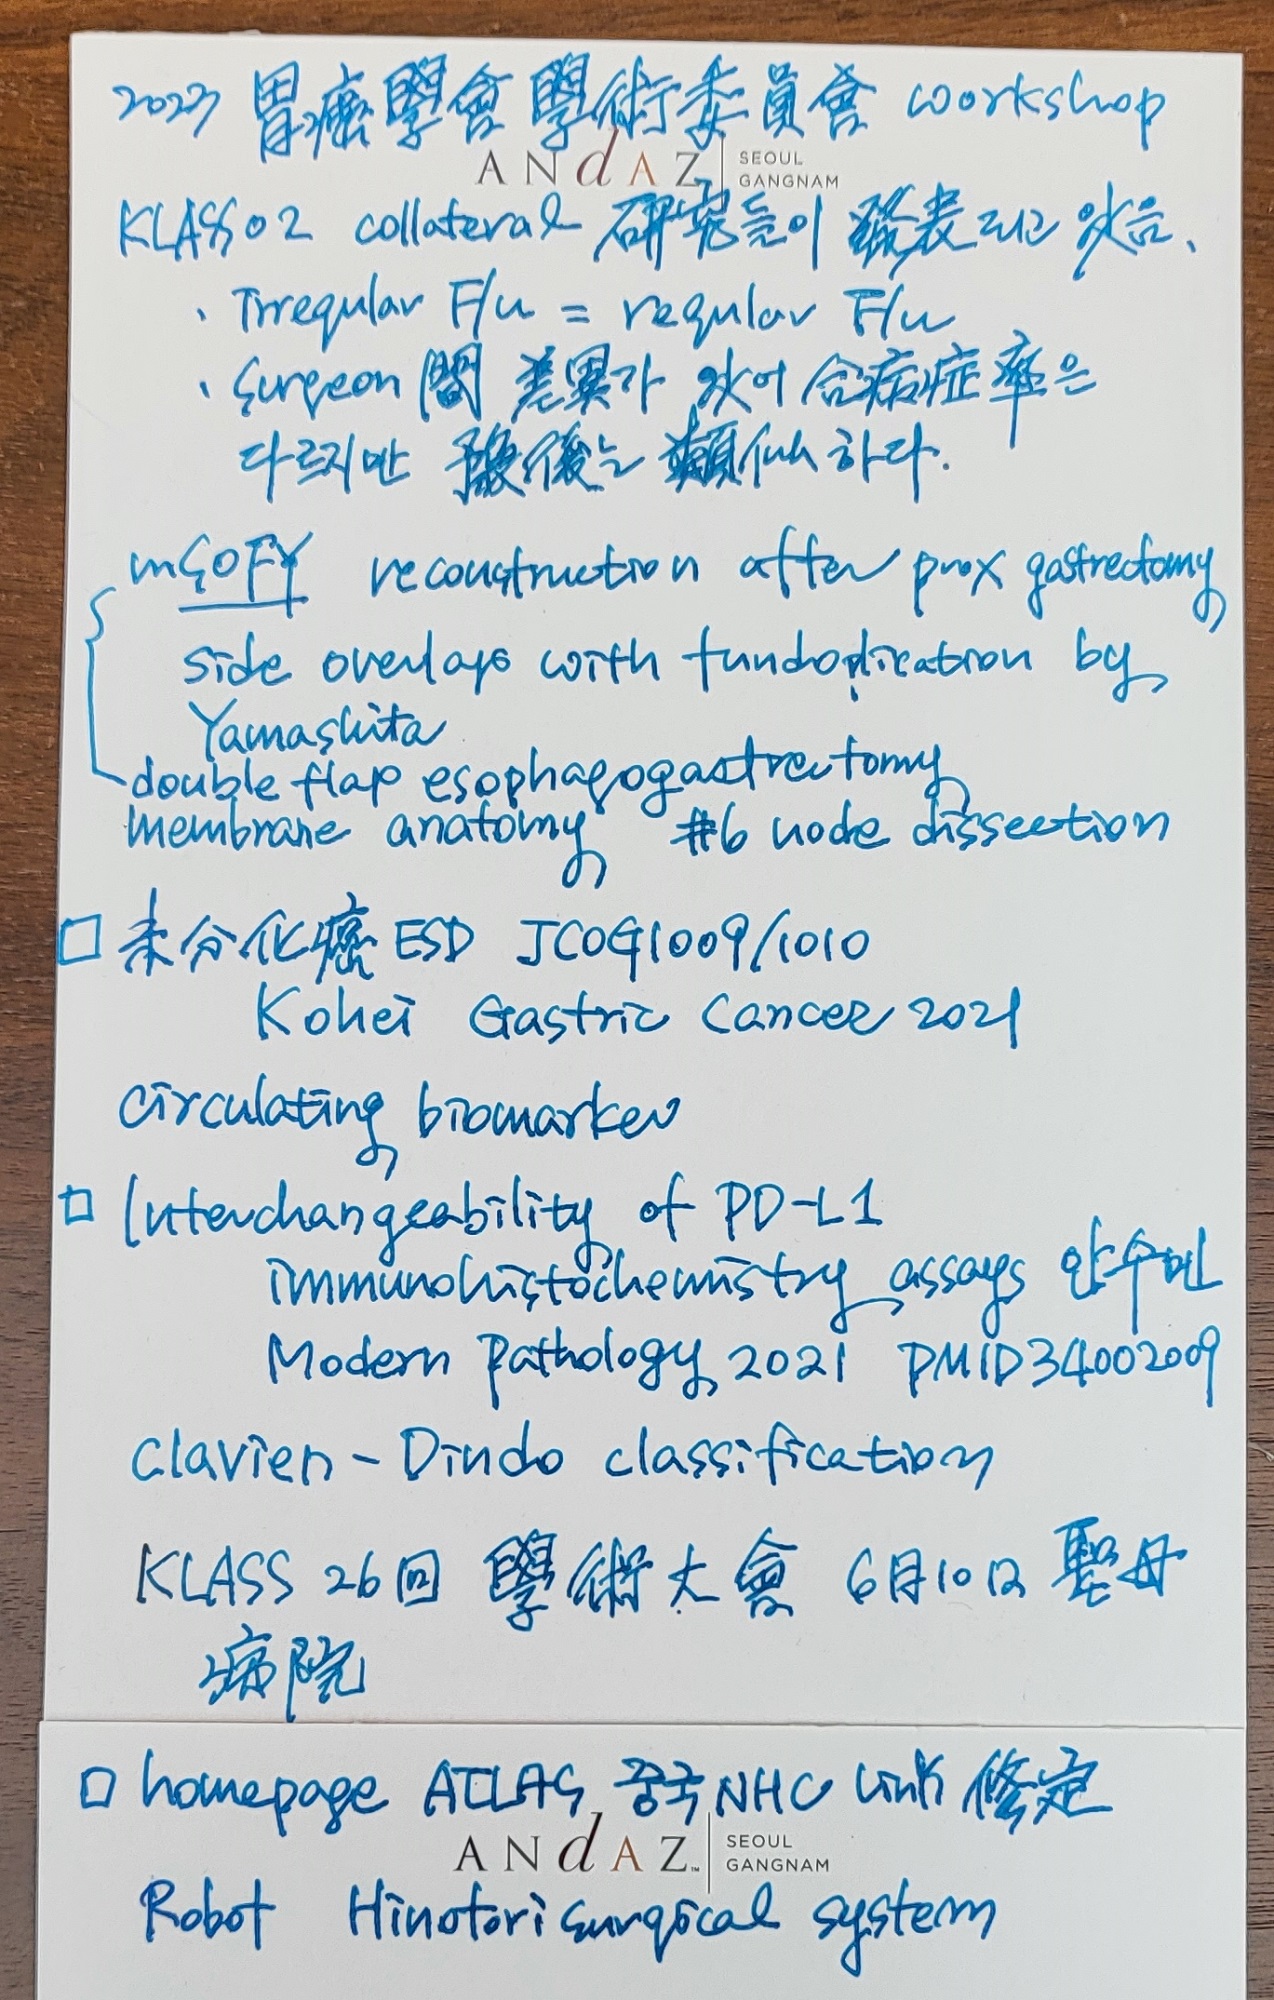 2023 胃癌學會 學術委員會 workshop
ANdAZ SEOUL GANGNAM
KLASS02 collateral 硏究들이 發表되고 있음.
· Irregular F/u = regular F/u
· Surgeon 間 差異가 있어 合病症率은
다르지만 豫後는 類似하다.
mSOFY reconstruction after prox gastrectomy
side overlap with fundoplication by
Yamashita
double flap esophagogastrectomy
membrane anatomy #6 node dissection
□ 未分化癌 ESD JCOG1009/1010
Kohei Gastric Cancer 2021
circulating biomarker
□ Interchangeability of PD-L1
immunohistochemistry assays 안수민
Modern Pathology 2021 PMID34002009
Clavien-Dindo classification
KLASS 26回 學術大會 6月10日 聖母
病院
□ homepage ATLAS 중국NHC link 修定
ANdAZ™ SEOUL GANGNAM
Robot Hinotori surgical system